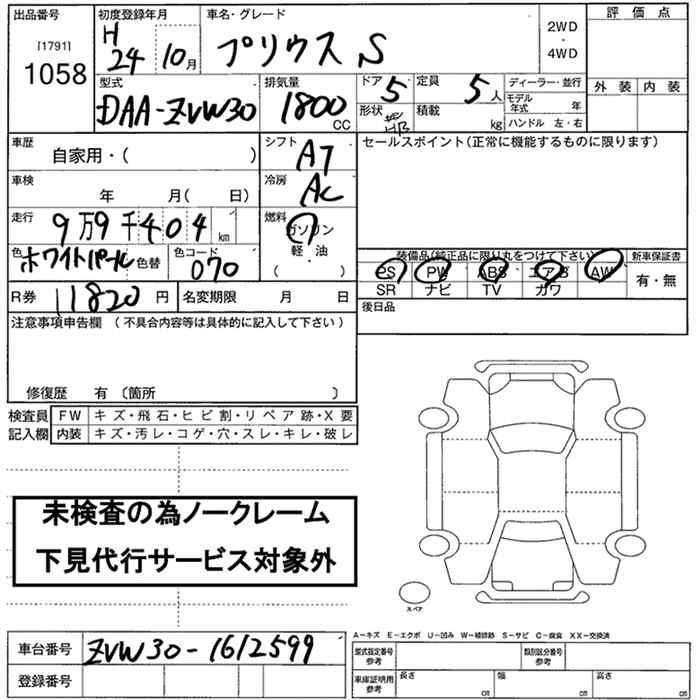 出品番号
[1791]
1058
初度登録年月
H
24 10月
車名・グレード
プリウス S
2WD
・
4WD
評価点
外装 内装
型式
DAA-ZVW30
排気量
1800
CC
ドア 5
定員 5人
形状
HB
積載 kg
ディーラー・並行
モデル年式 年
ハンドル 左・右
車歴
自家用・( )
シフト
AT
セールスポイント(正常に機能するものに限ります)
車検
年 月( 日)
冷房
AC
走行
9万9千404km
燃料
ガソリン
軽・油
( )
色
ホワイトパール 色替
色コード
070
装備品(純正品に限り丸をつけて下さい)
PS PW ABS エアB AW
SR ナビ TV ガワ
新車保証書
有・無
R券 11820円
名変期限 月 日
後日品
注意事項申告欄 (不具合内容等は具体的に記入して下さい)
修復歴 有 〔箇所 〕
検査員
記入欄
FW キズ・飛石・ヒビ割・リペア跡・X要
内装 キズ・汚レ・コゲ・穴・スレ・キレ・破レ
未検査の為ノークレーム
下見代行サービス対象外
スペア
A-キズ E-エクボ U-凹み W-補修跡 S-サビ C-腐食 XX-交換済
車台番号 ZVW30-1612599
登録番号
型式指定番号
参考
類別区分番号
参考
車庫証明用
参考
長さ cm
幅 cm
高さ cm